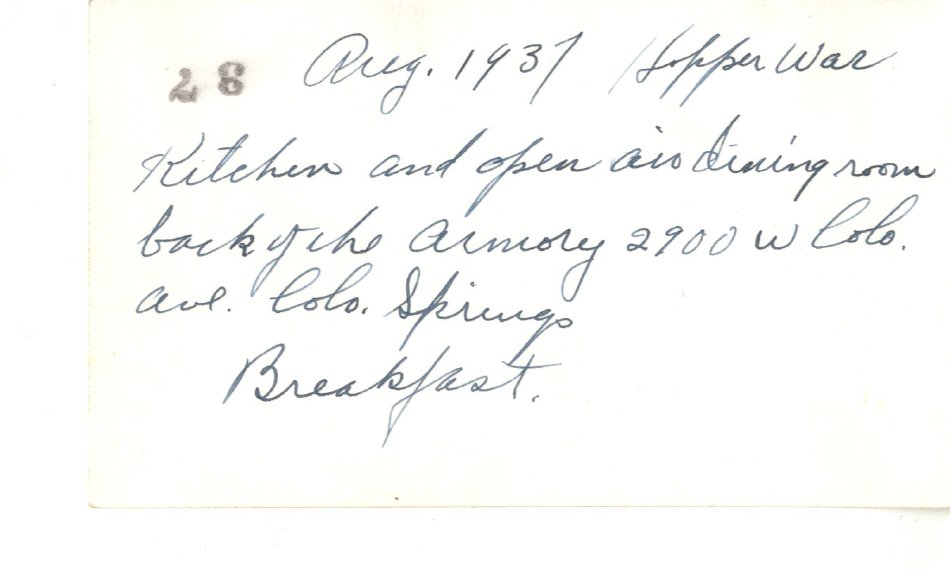 28 Aug. 1937 Hopper War
Kitchen and open air dining room
back of the Armory 2900 W Colo.
Ave. Colo. Springs
Breakfast.